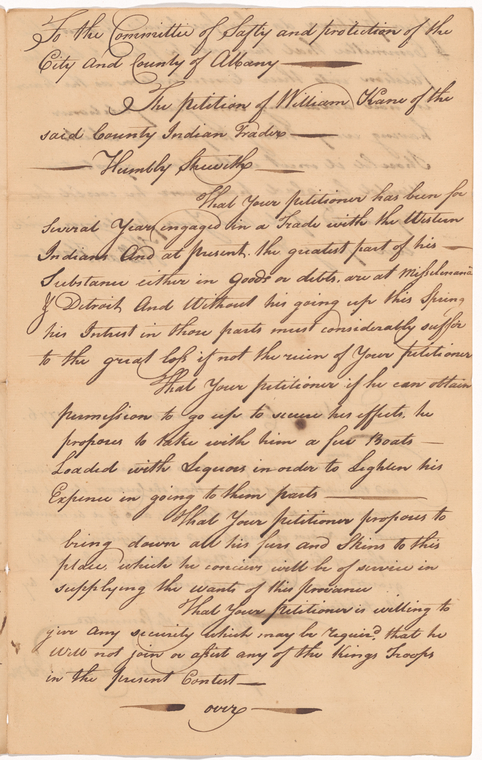 To the Committee of Safty and protection of the
City and County of Albany
The petition of William Kane of the
said County Indian Trader
Humbly Sheweth
That Your petitioner has been for
several Years engaged in a Trade with the Western
Indians And at present, the greatest part of his
Substance either in Goods or debts, are at
& Detroit And Without his going up this Spring
his Intrest in those parts must considerably suffer
to the great loss if not the ruin of Your petitioner
That Your petitioner if he can obtain
permission to go up to secure his effects, he
proposes to take with him a few Boats
Loaded with Liquors in order to Lighten his
Expence in going to them parts
That Your Petitioner proposes to
bring down all his furs and Skins to this
place, which he concives will be of service in
supplying the wants of this provance
That Your Petitioner is willing to
give any security which may be requird. that he
will not join or assist any of the Kings Troops
in the present Contest
over